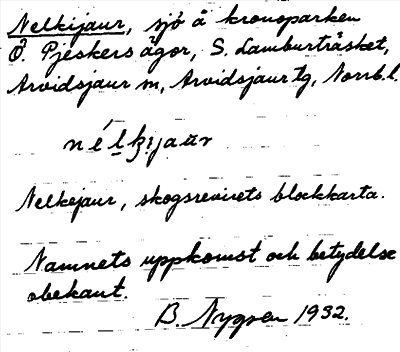 Nelkijaur, sjö å kronoparken
Ö. Pjeskers ägor, S. Lamburträsket,
Arvidsjaur sn, Arvidsjaur tg, Norrb.l.
nélkijaur
Nelkejaur, skogsrevirets blockkarta.
Namnets uppkomst och betydelse
obekant.
B. Nygren 1932.